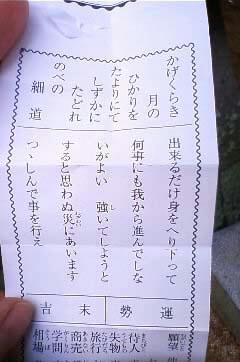 かげくらき
月の
ひかりを
たよりにて
しずかに
たどれ
のべの
細道
出来るだけ身をへり下って
何事にも我から進んでしな
いがよい 強いてしようと
すると思わぬ災にあいます
つゝしんで事を行え
運勢
末吉
願望
待人
失物
旅行
商売
学問
相場